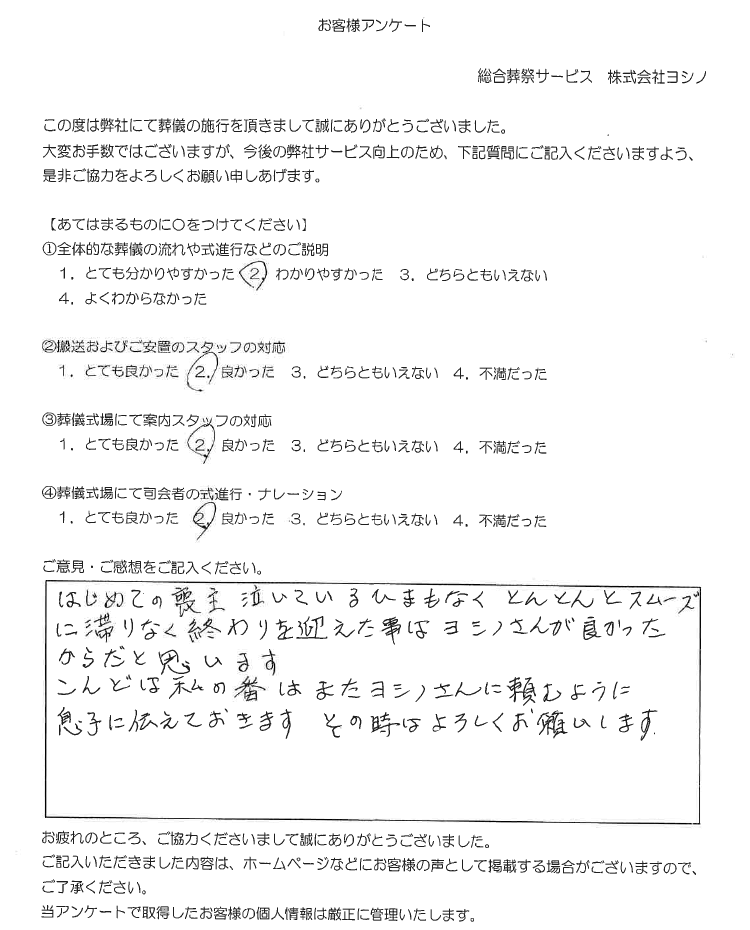 お客様アンケート
総合葬祭サービス　株式会社ヨシノ
この度は弊社にて葬儀の施行を頂きまして誠にありがとうございました。
大変お手数ではございますが、今後の弊社サービス向上のため、下記質問にご記入くださいますよう、
是非ご協力をよろしくお願い申しあげます。
【あてはまるものに○をつけてください】
①全体的な葬儀の流れや式進行などのご説明
1．とても分かりやすかった　2．わかりやすかった　3．どちらともいえない
4．よくわからなかった
②搬送およびご安置のスタッフの対応
1．とても良かった　2．良かった　3．どちらともいえない　4．不満だった
③葬儀式場にて案内スタッフの対応
1．とても良かった　2．良かった　3．どちらともいえない　4．不満だった
④葬儀式場にて司会者の式進行・ナレーション
1．とても良かった　2．良かった　3．どちらともいえない　4．不満だった
ご意見・ご感想をご記入ください。
はじめての喪主 泣いているひまもなく とんとんとスムーズ
に滞りなく終わりを迎えた事は ヨシノさんが良かった
からだと思います
こんどは私の番は またヨシノさんに頼むように
息子に伝えておきます その時はよろしくお願いします
お疲れのところ、ご協力くださいまして誠にありがとうございました。
ご記入いただきました内容は、ホームページなどにお客様の声として掲載する場合がございますので、
ご了承ください。
当アンケートで取得したお客様の個人情報は厳正に管理いたします。